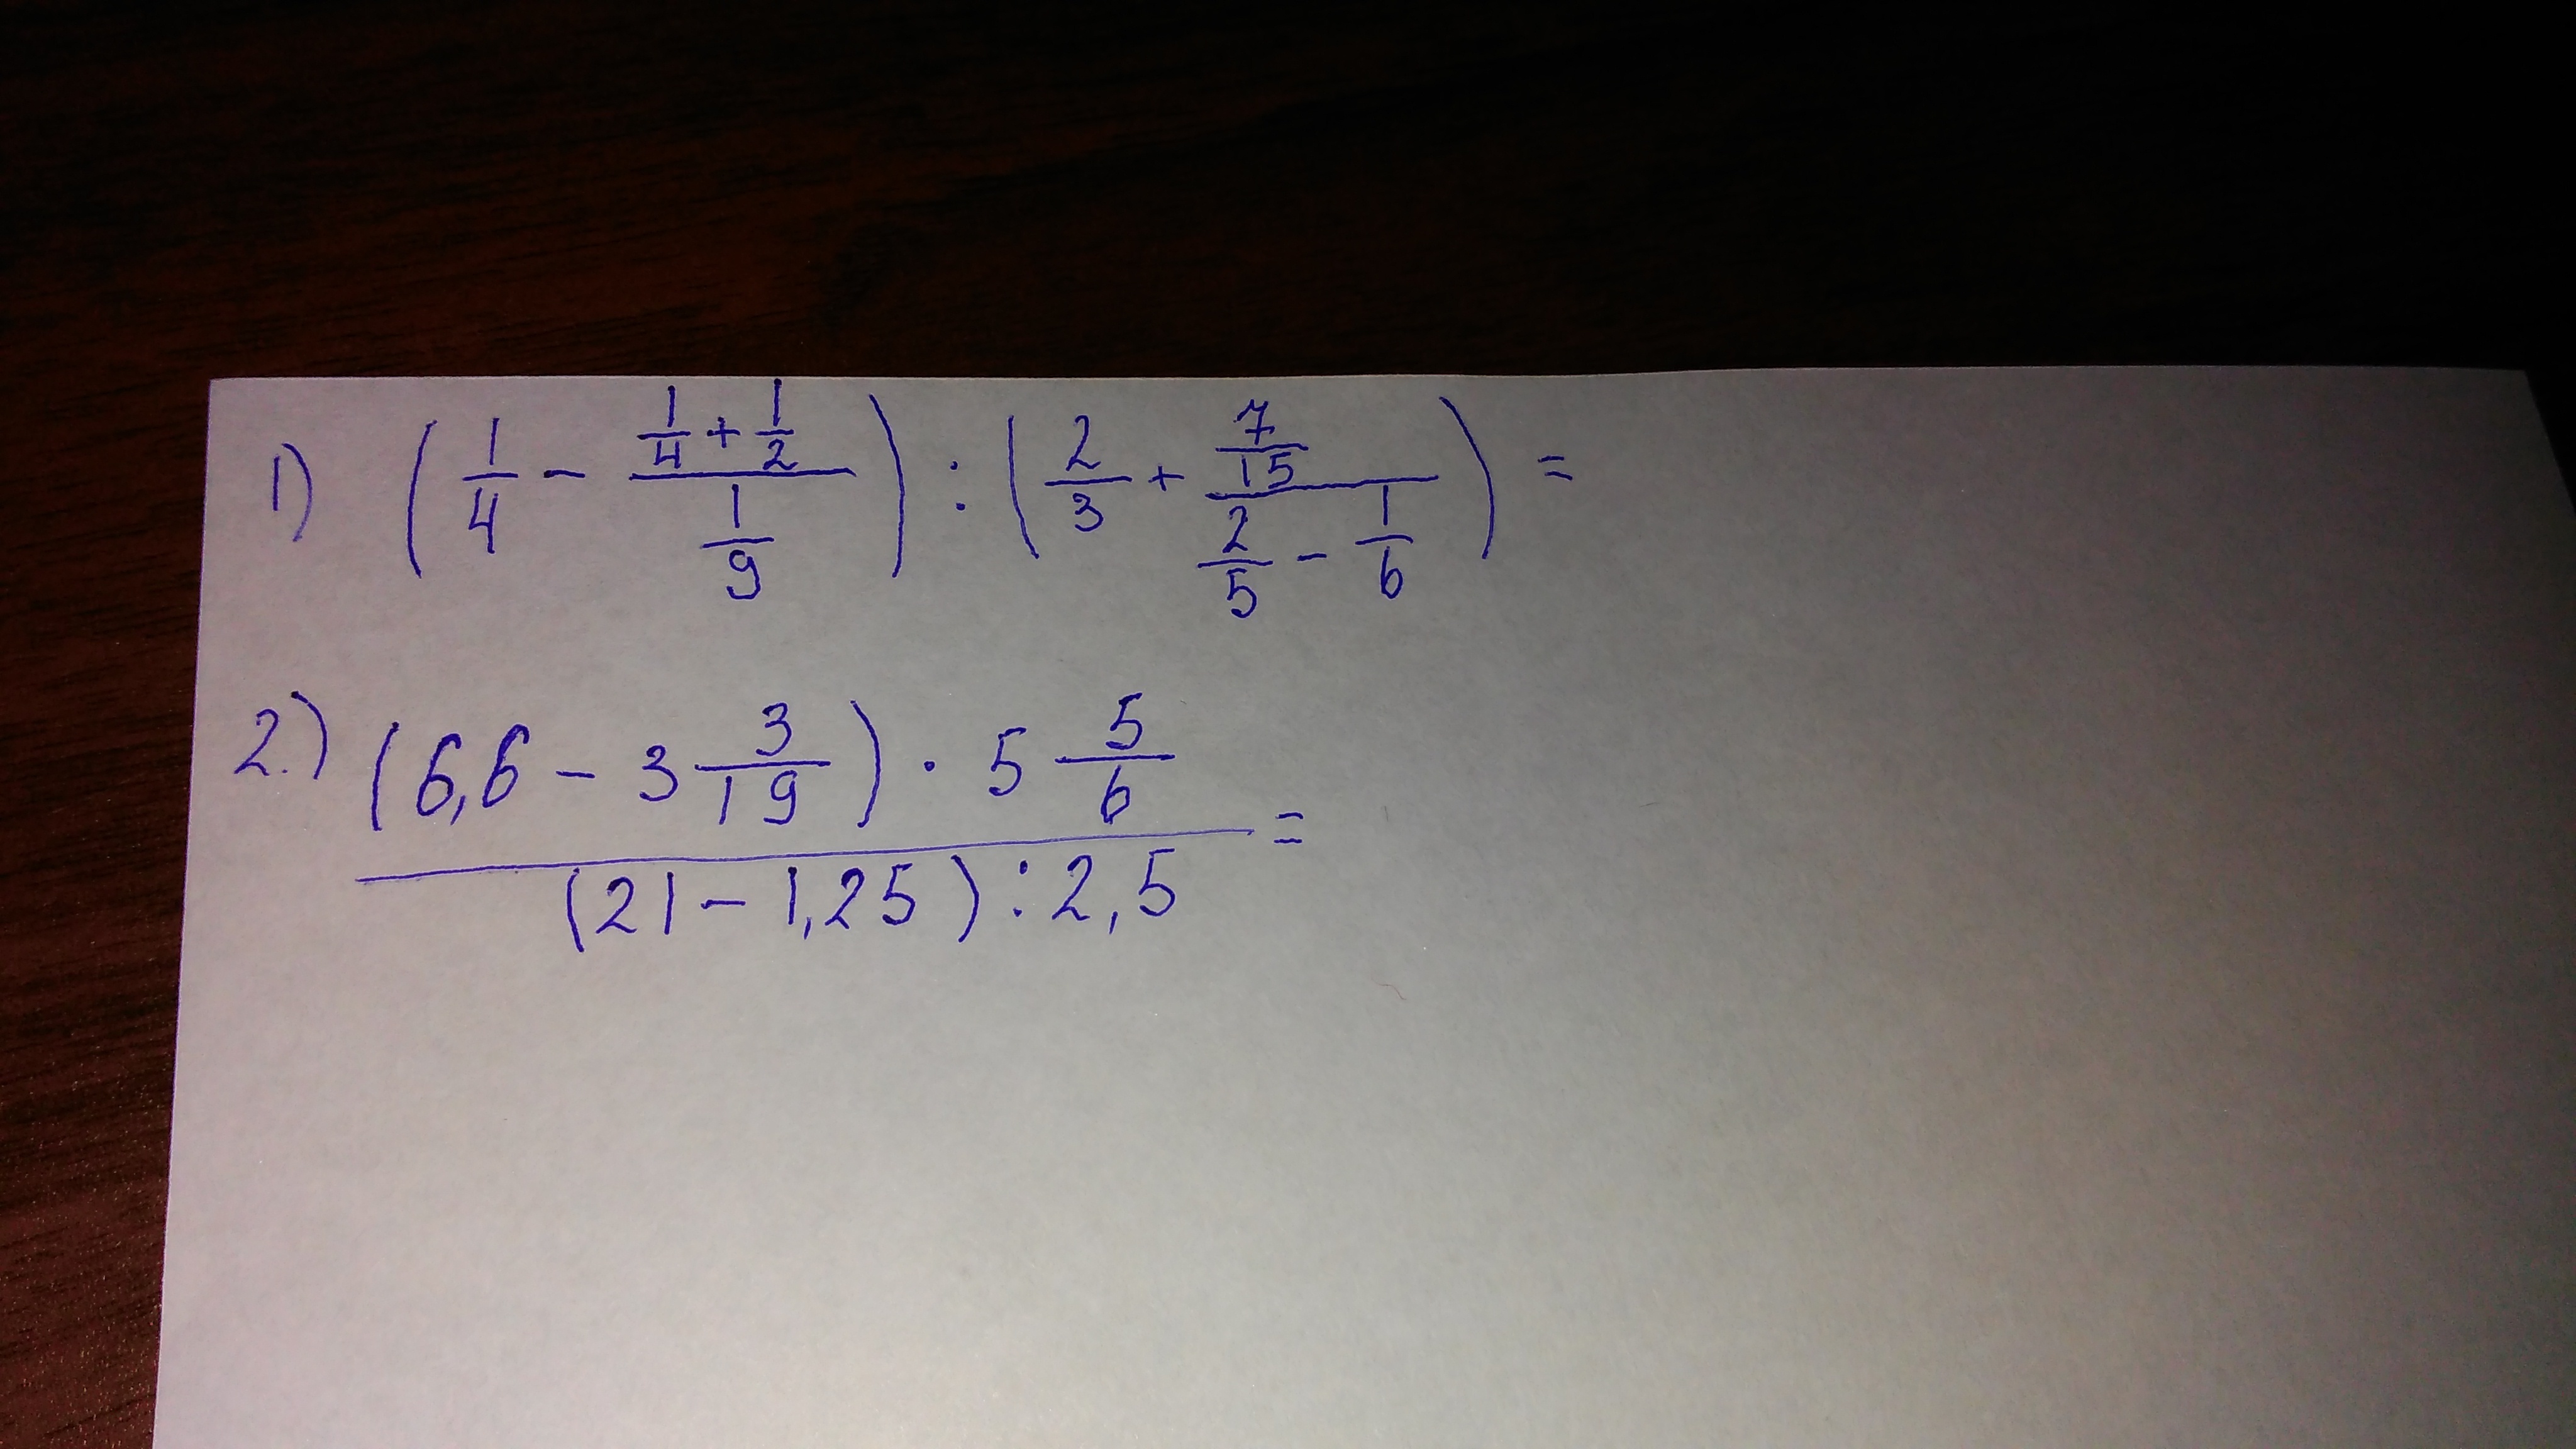 1) (1/4 - (1/4 + 1/2)/(1/9)) : (2/3 + (7/15)/(2/5 - 1/6)) =
2.) ((6,6 - 3 3/19) · 5 5/6)/((21 - 1,25) : 2,5) =